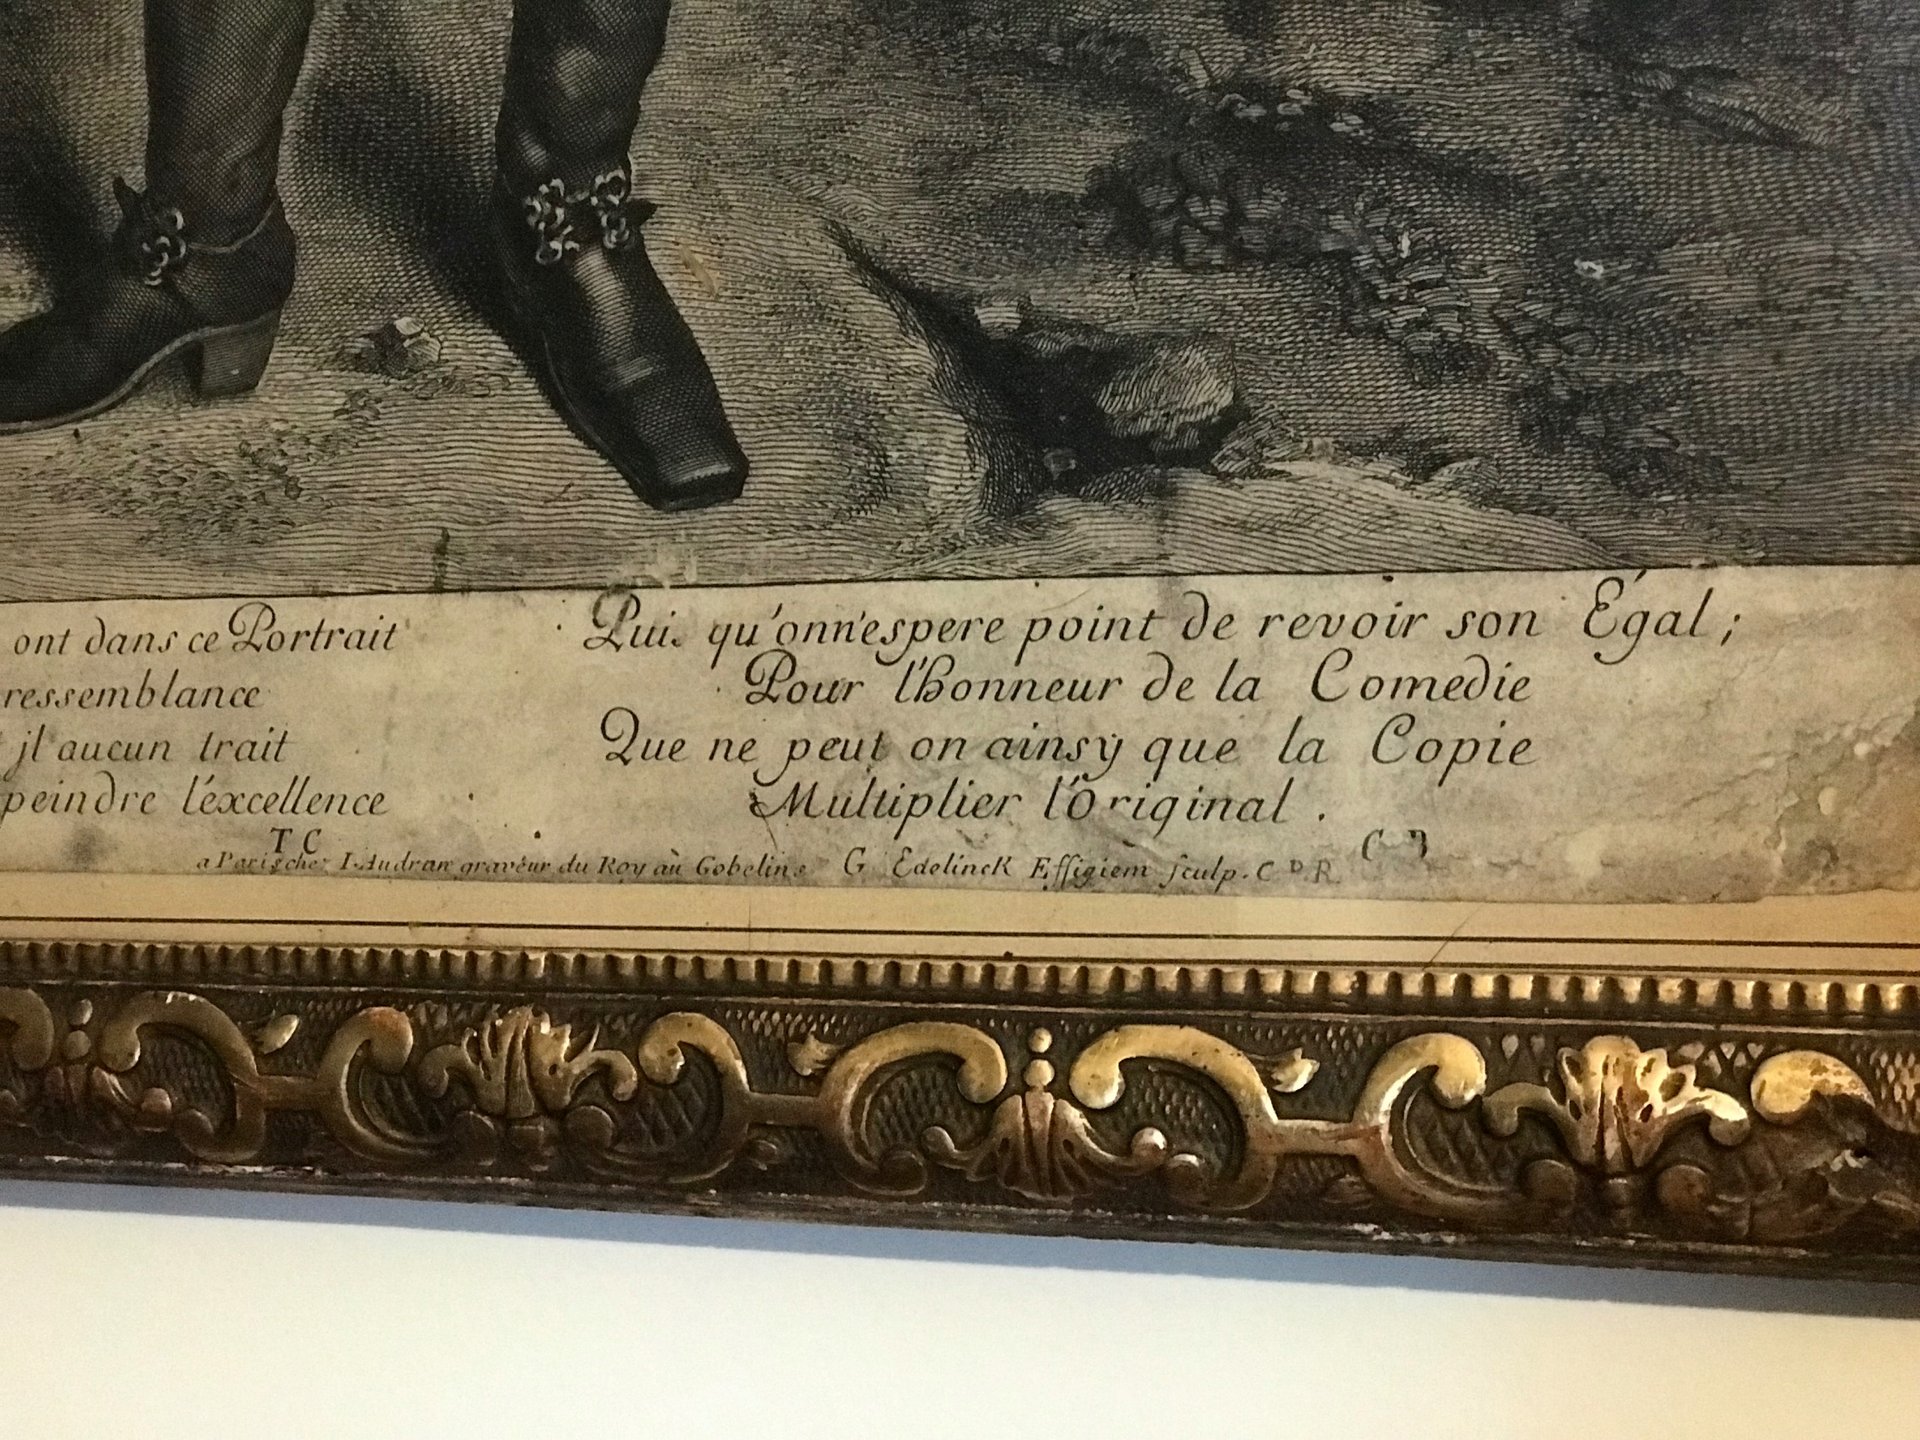 ont dans ce Portrait
ressemblance
jl aucun trait
peindre l'éxcellence
Puis qu'on n'espere point de revoir son Égal ;
Pour l'honneur de la Comedie
Que ne peut on ainsy que la Copie
Multiplier l'Original .
T C
a Paris chez I. Audran graveur du Roy aù Gobelins G Edelinck Effigiem sculp. C D R